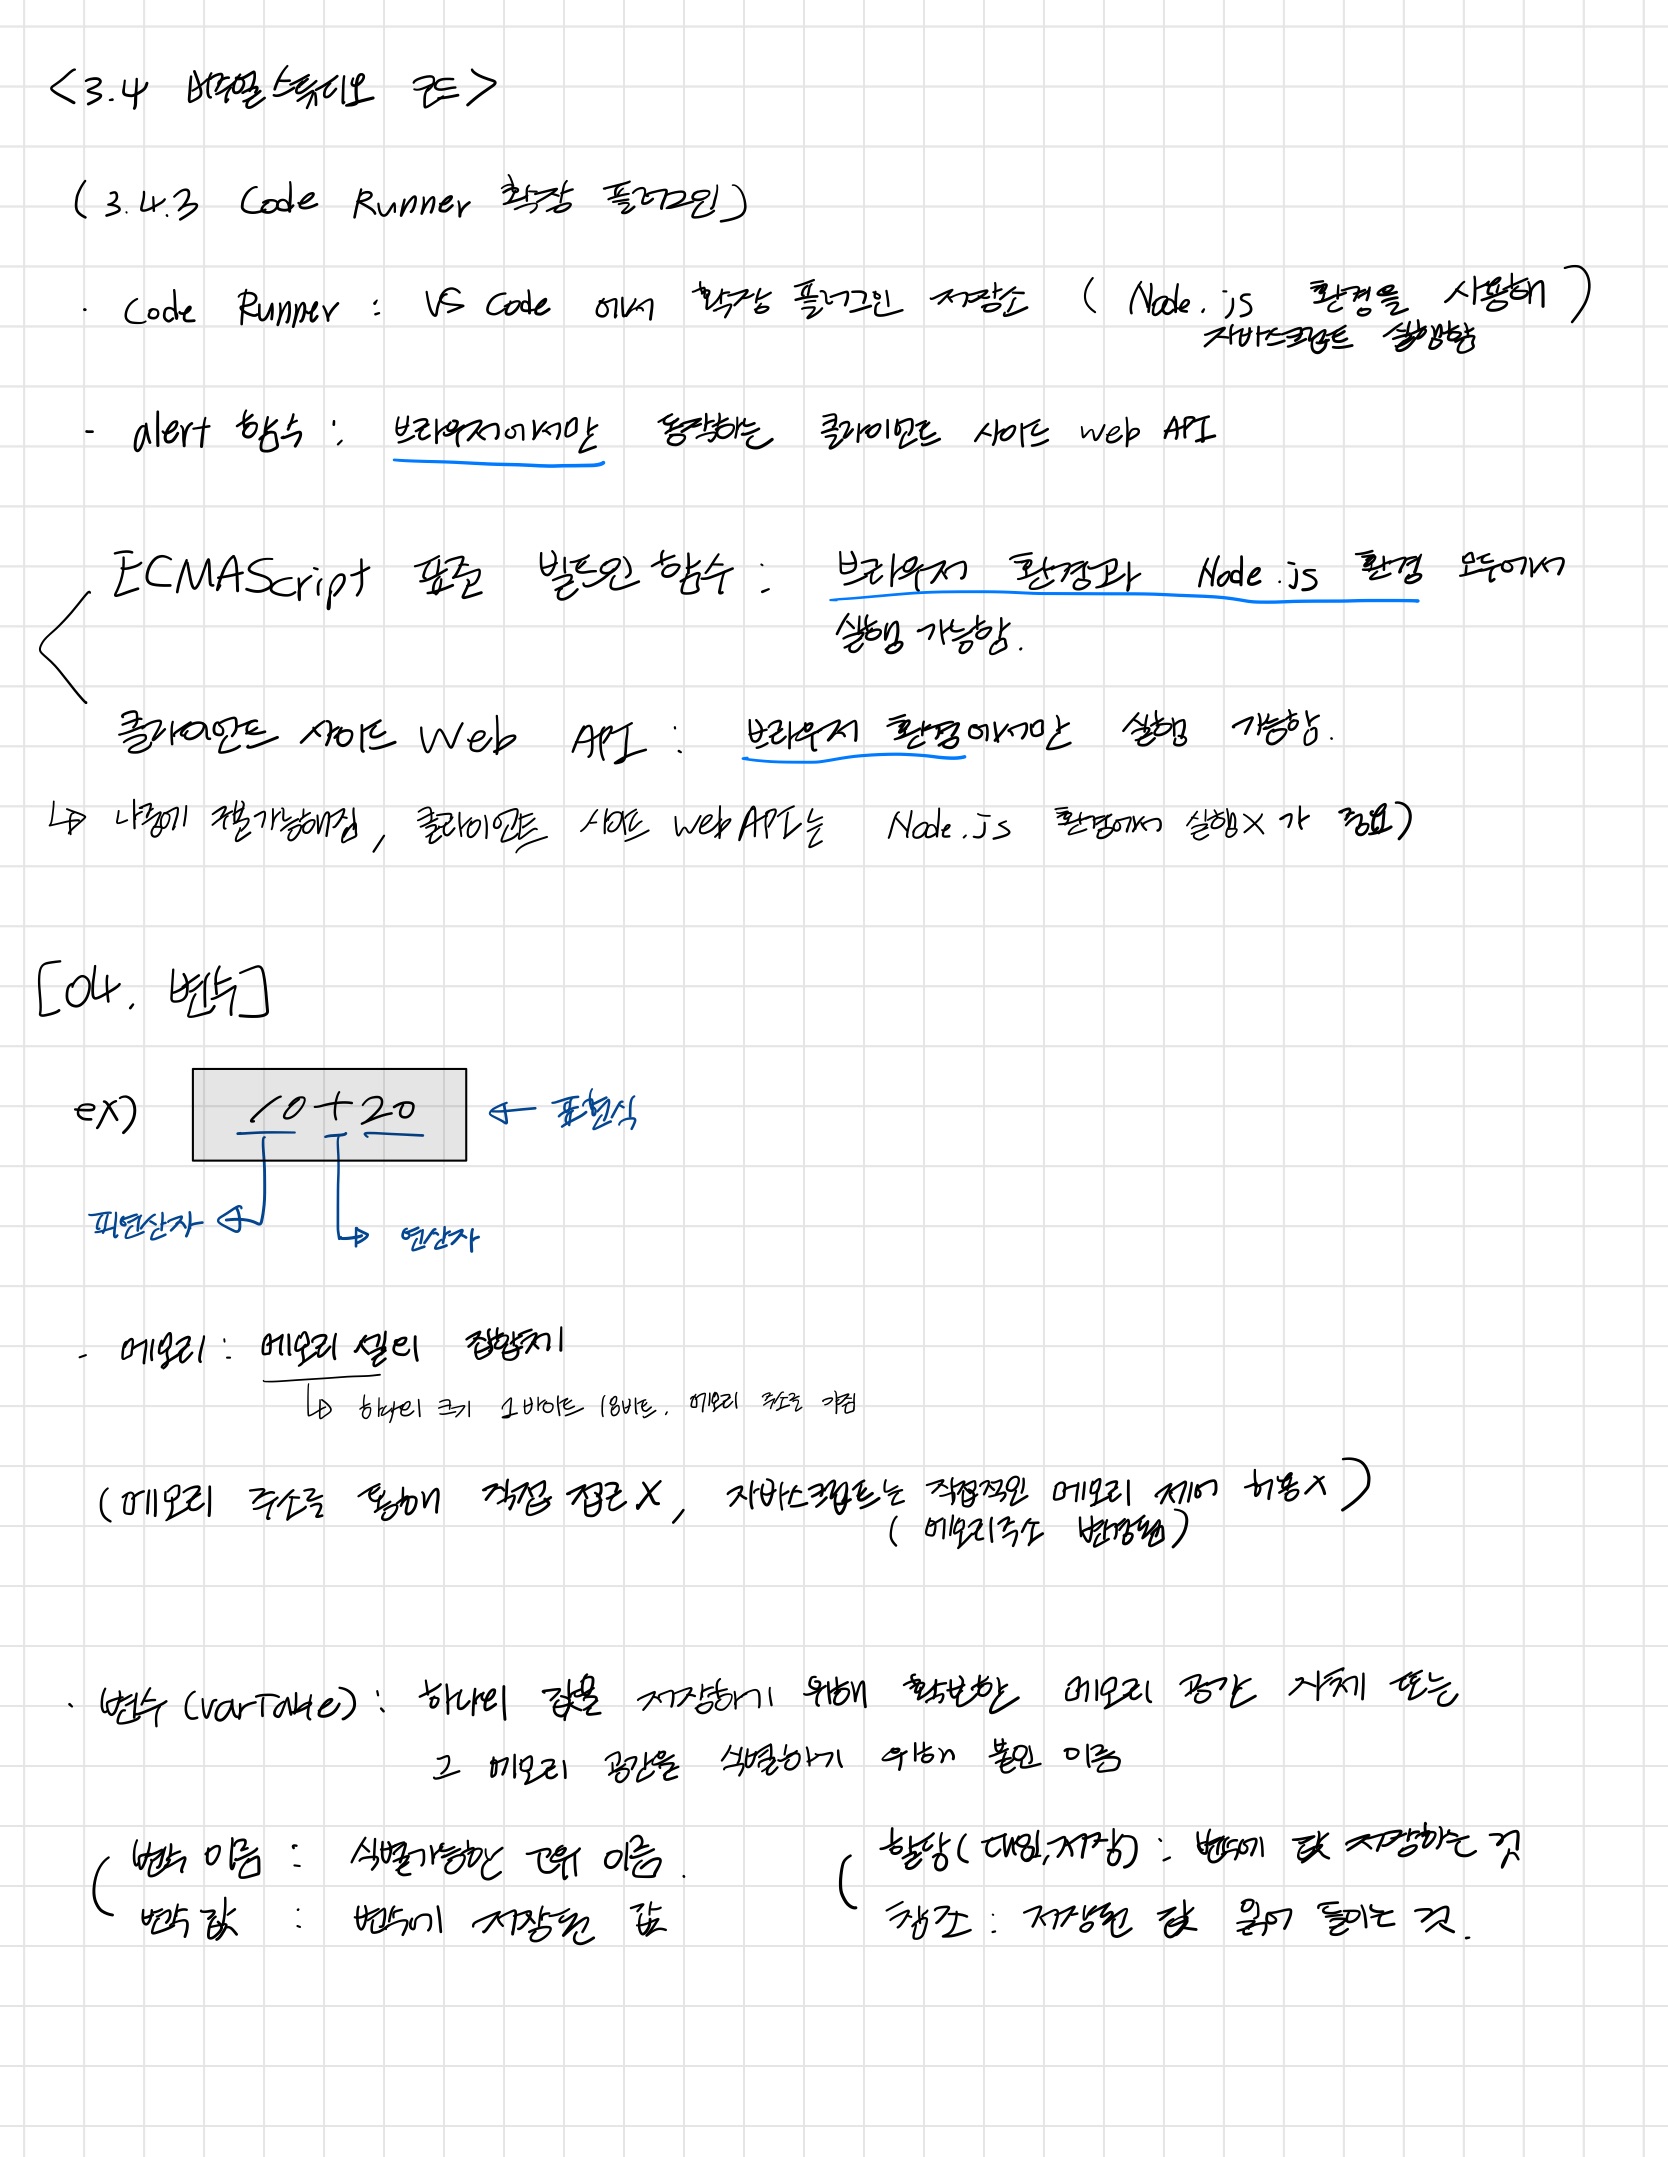 <3.4 비주얼 스튜디오 코드>
(3.4.3 Code Runner 확장 플러그인)
· Code Runner : VS Code 에서 확장 플러그인 저장소 ( Node.js 환경을 사용해
자바스크립트 실행함 )
- alert 함수 : 브라우저에서만 동작하는 클라이언트 사이드 web API
ECMAScript 표준 빌트인 함수 : 브라우저 환경과 Node.js 환경 모두에서
실행 가능함.
클라이언트 사이드 Web API : 브라우저 환경에서만 실행 가능함.
↳ 나중에 구분가능해짐, 클라이언트 사이드 web API는 Node.js 환경에서 실행X 가 중요)
[04. 변수]
ex) 10 + 20 ← 표현식
피연산자 연산자
- 메모리 : 메모리 셀의 집합체
↳ 하나의 크기 1바이트 18비트. 메모리 주소를 가짐
(메모리 주소를 통해 직접 접근 X, 자바스크립트는 직접적인 메모리 제어 허용X)
( 메모리주소 변경됨)
· 변수 (variable) : 하나의 값을 저장하기 위해 확보한 메모리 공간 자체 또는
그 메모리 공간을 식별하기 위해 붙인 이름
변수 이름 : 식별가능한 고유 이름.
변수 값 : 변수에 저장된 값
할당(대입,저장) : 변수에 값 저장하는 것
참조 : 저장된 값 읽어 들이는 것.